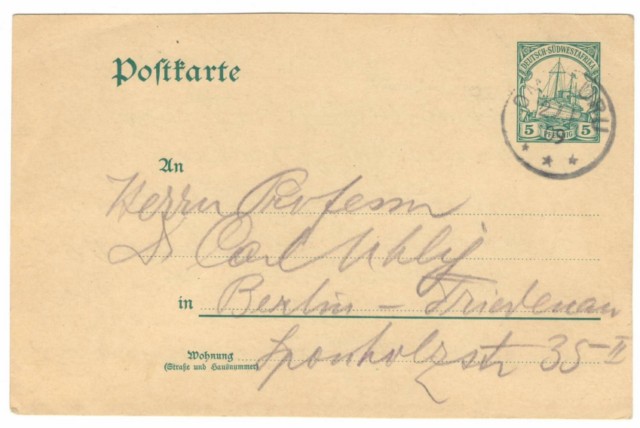 Postkarte
DEUTSCH-SÜDWESTAFRIKA
5 PFENNIG 5
An
Herrn Professor
Dr Carl Uhlig
in Berlin - Friedenau
Wohnung Sponholzstr 35 II
(Straße und Hausnummer)